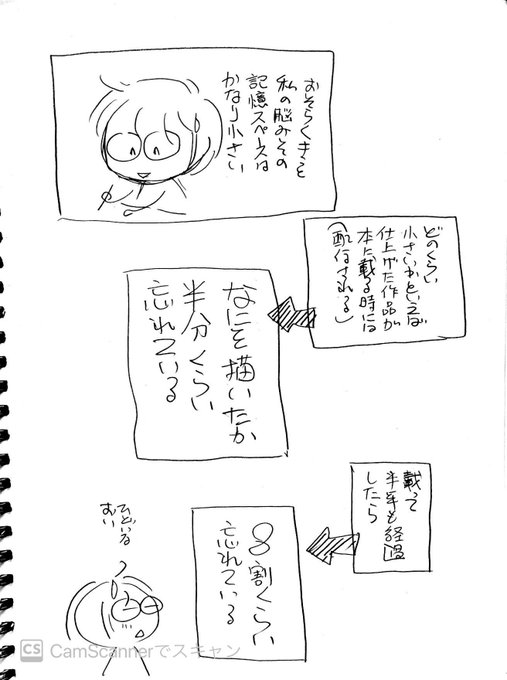 おそらくきっと
私の脳みその
記憶スペースは
かなり小さい
どのくらい
小さいかといえば
仕上げた作品が
本に載る時には
(配信される)
なにを描いたか
半分くらい
忘れている
載って
半年も経過
したら
8割くらい
忘れている
ひどいな
おい
CS CamScannerでスキャン